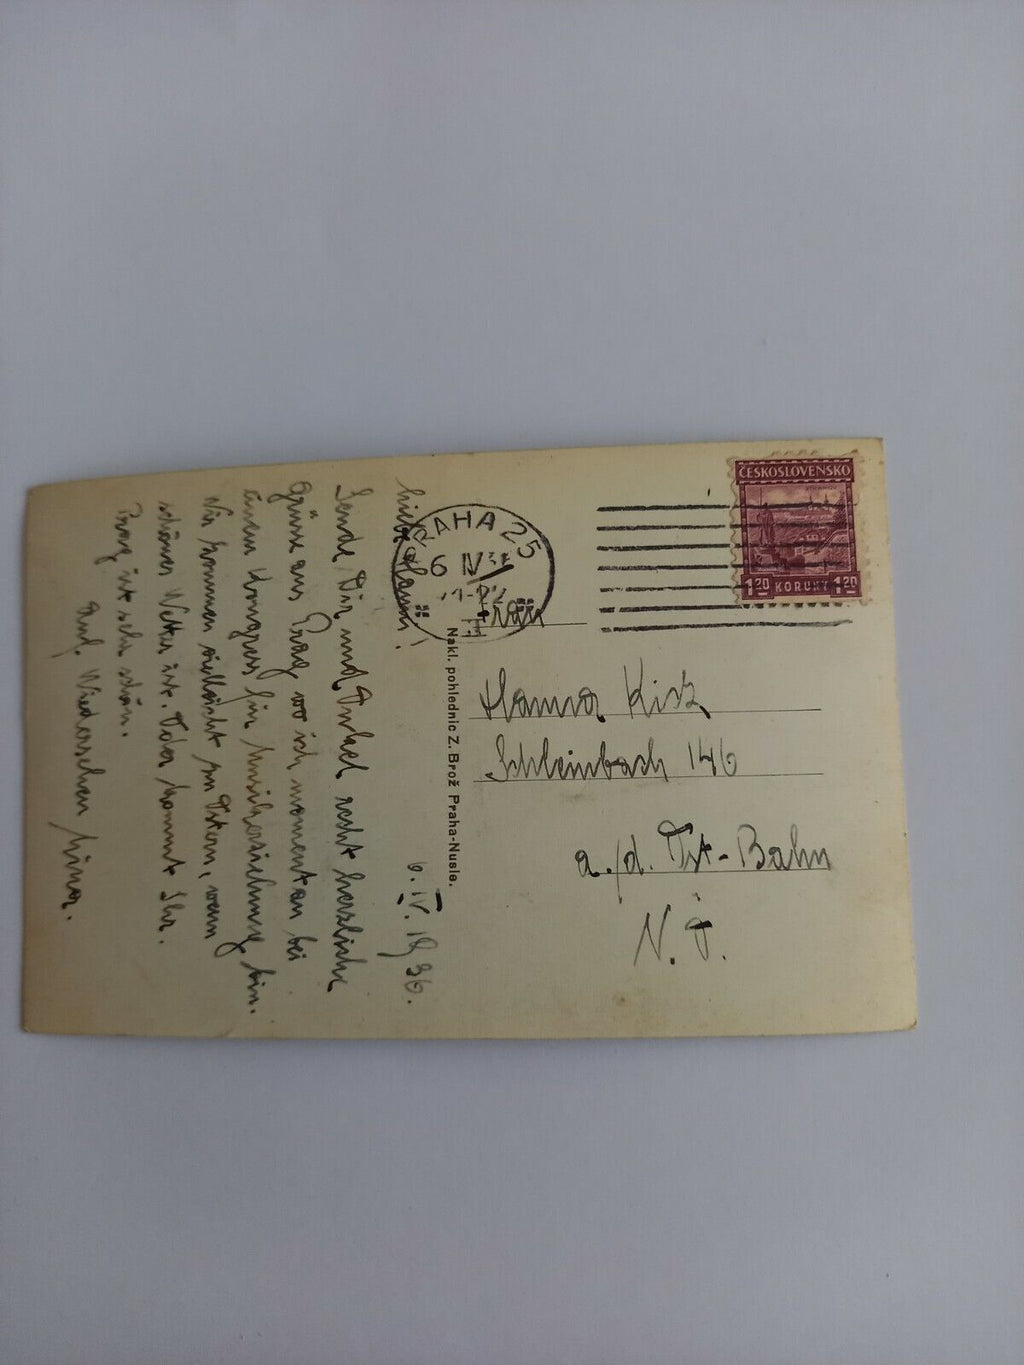 6. IV. 1936.
Liebe Hanna!
Sende Dir und Onkel recht herzliche
Grüsse aus Prag, wo ich momentan bei
einem Kongress für Musikerziehung bin.
Wir kommen vielleicht zu Ostern, wenn
schönes Wetter ist. Oder kommt Ihr.
Prag ist sehr schön.
Auf. Wiedersehen
Nakl. pohlednic Z. Brož Praha-Nusle.
PRAHA 25
6 IV
ČESKOSLOVENSKO
1 20 KORUNY 1 20
Hanna
Schleinbach 146
a./d. Ost-Bahn
N.